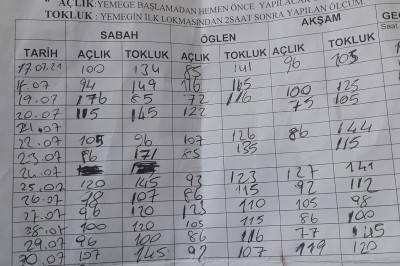 " AÇLIK:YEMEGE BAŞLAMADAN HEMEN ÖNCE YAPILACAK
TOKLUK : YEMEGİN İLK LOKMASINDAN 2SAAT SONRA YAPILAN ÖLÇÜM.
SABAH ÖGLEN AKŞAM
TARİH AÇLIK TOKLUK AÇLIK TOKLUK AÇLIK TOKLUK Saat
17.07.21 100 134 85 141 96 105
94 149 116 165 100 125
19.07 176 85 72 116 75 105
20.07 115 145 122
21.07
22.07 105 96 107 126 86 144
23.07 86 171 85 135 115
24.07 141
25.07 120 145 93 123 127 112
26.07 78 107 86 115 92 98
27.07 96 120 123 110 105 100
28.07 100 120 105 115 86 145
29.07 96 100 86 116 77 120
30.07 107 145 92 107 119